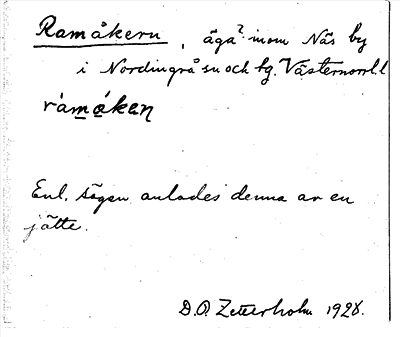 Ramåkern, äga? inom Näs by
i Nordingrå sn och hg. Västernorrl. l
rámákan
Enl. sägen anlades denna av en
jätte.
D.O. Zetterholm 1928.